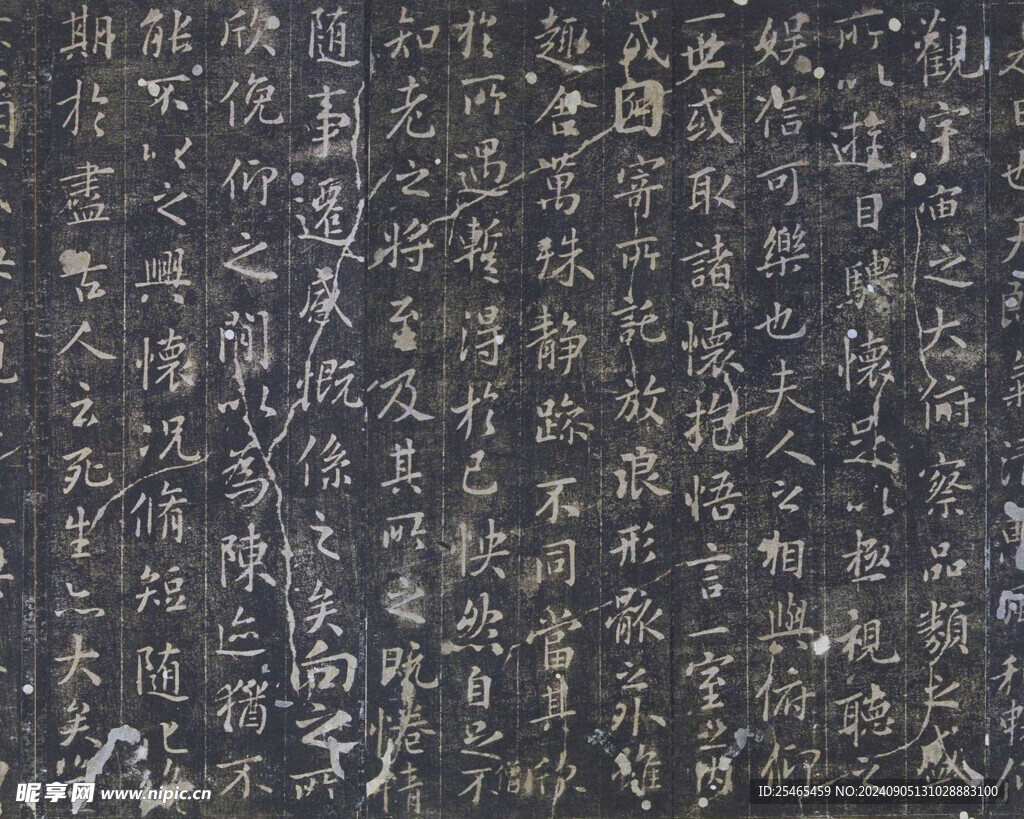 是日也天朗氣清惠風和暢仰
觀宇宙之大俯察品類之盛
所以遊目騁懷足以極視聽之
娛信可樂也夫人之相與俯仰
一世或取諸懷抱悟言一室之內
或因寄所託放浪形骸之外雖
趣舍萬殊静躁不同當其欣
於所遇暫得於己怏然自足不
僧
知老之將至及其所之既惓情
随事遷感慨係之矣向之所
欣俛仰之間以為陳迹猶不
能不以之興懷況脩短随化終
期於盡古人云死生亦大矣豈
昵享网 www.nipic.cn
ID:25465459 NO:20240905131028883100